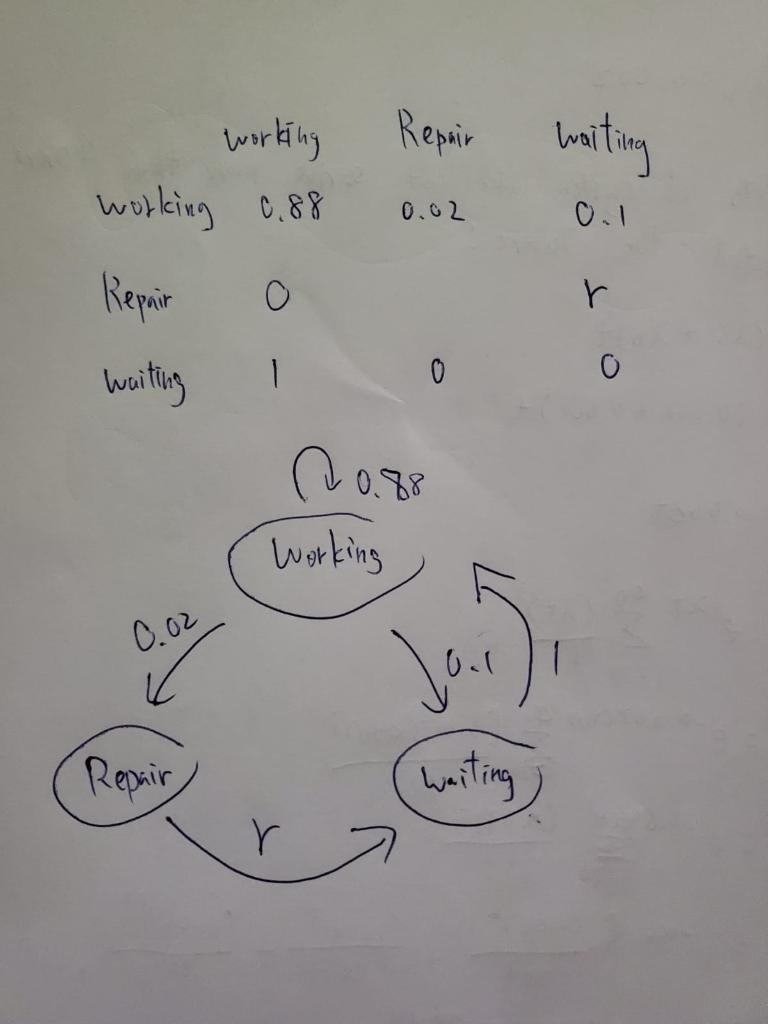 Working Repair Waiting
Working 0.88 0.02 0.1
Repair 0 r
Waiting 1 0 0
0.88
Working
0.02
0.1
1
Repair
Waiting
r